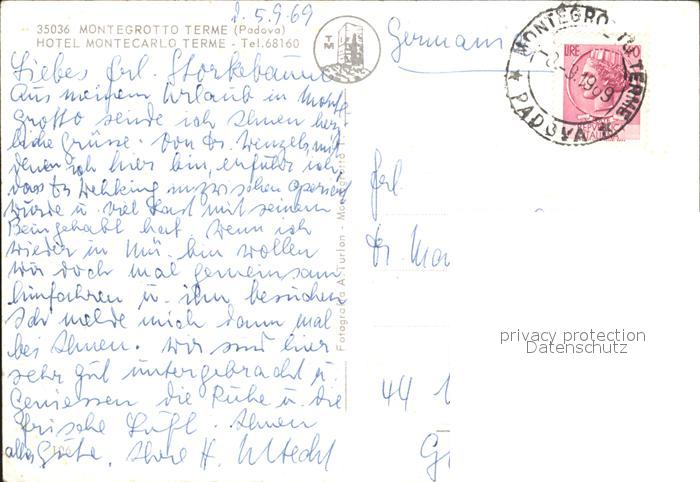 d. 5.9.69
35036 MONTEGROTTO TERME (Padova)
HOTEL MONTECARLO TERME - Tel. 68160
TM
Germania
MONTEGROTTO TERME
PADOVA
LIRE
Liebes Frl. Storkebaum
Aus meinem Urlaub in Monte
grotto sende ich Ihnen herz
liche Grüsse. Von Dr. Wenzels, mit
denen ich hier bin, erfuhr ich,
dass Dr. Wehking inzwischen operiert
wurde u. viel Last mit seinem
Bein gehabt hat. Wenn ich
wieder in Mü. bin wollen
wir doch mal gemeinsam
hinfahren u. ihn besuchen
Ich melde mich dann mal
bei Ihnen. Wir sind hier
sehr gut untergebracht u.
Geniessen die Ruhe u. die
frische Luft. Ihnen
alles Gute, Ihre H.
Fotografia A. Turlon - Montegrotto
Frl.
Dr. Ma
44
privacy protection
Datenschutz